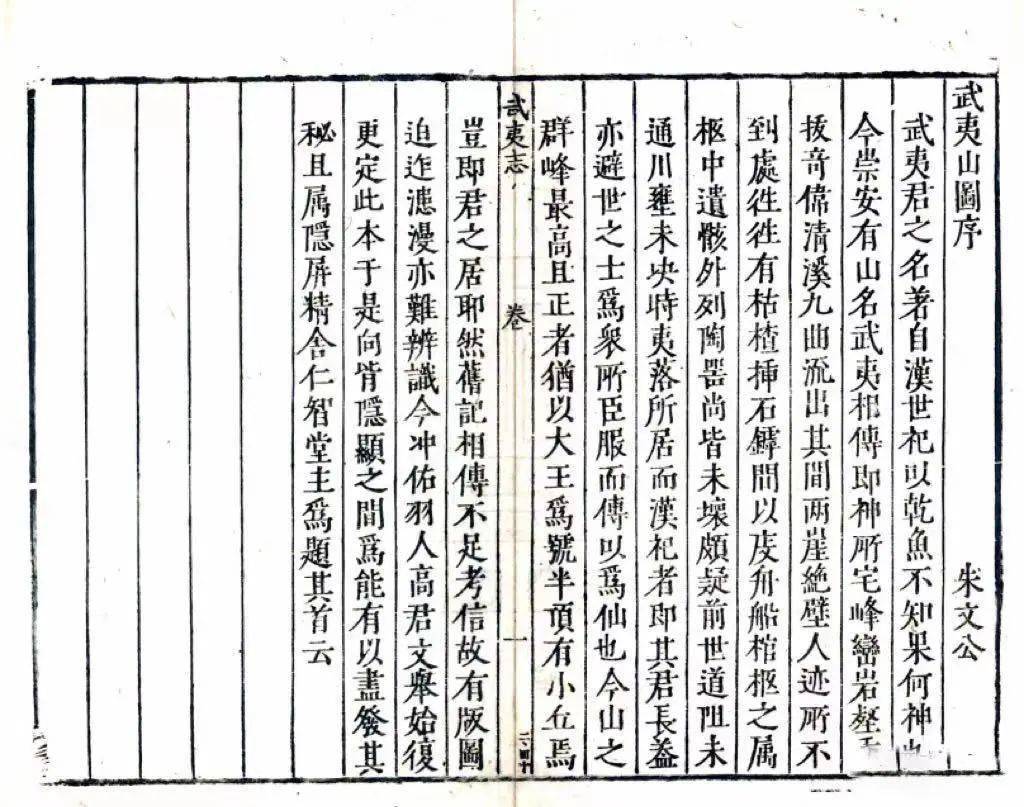 武夷山圖序 朱文公
武夷君之名著自漢世祀以乾魚不知果何神也
今崇安有山名武夷相傳即神所宅峰巒岩壑
拔奇偉清溪九曲流出其間两崖絶壁人迹所不
到處徃徃有枯楂揷石罅間以庋舟船棺柩之属
柩中遺骸外列陶器尚皆未壞頗疑前世道阻未
通川壅未决時夷落所居而漢祀者即其君長葢
亦避世之士爲衆所臣服而傳以爲仙也今山之
群峰最高且正者猶以大王爲號半頂有小丘焉
武夷志 卷 一
豈即君之居耶然舊記相傳不足考信故有版圖
迫迮漶漫亦難辨識今冲佑羽人高君文舉始復
更定此本于是向背隱顯之間爲能有以盡發其
秘且属隱屏精舍仁智堂主爲題其首云